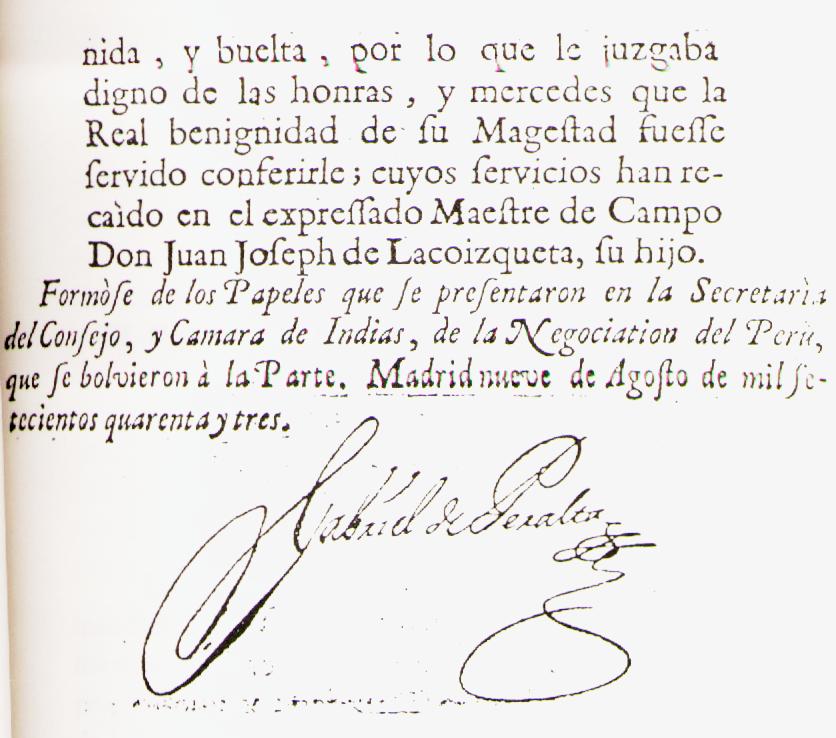 nida , y buelta , por lo que le juzgaba
digno de las honras , y mercedes que la
Real benignidad de ſu Mageſtad fueſſe
ſervido conferirle ; cuyos ſervicios han re-
caìdo en el expreſſado Maeſtre de Campo
Don Juan Joſeph de Lacoizqueta, ſu hijo.
Formòſe de los Papeles que ſe preſentaron en la Secretarìa
del Conſejo, y Camara de Indias, de la Negociation del Perù,
que ſe bolvieron à la Parte. Madrid nueve de Agoſto de mil ſe-
tecientos quarenta y tres.
Gabriel de Peralta